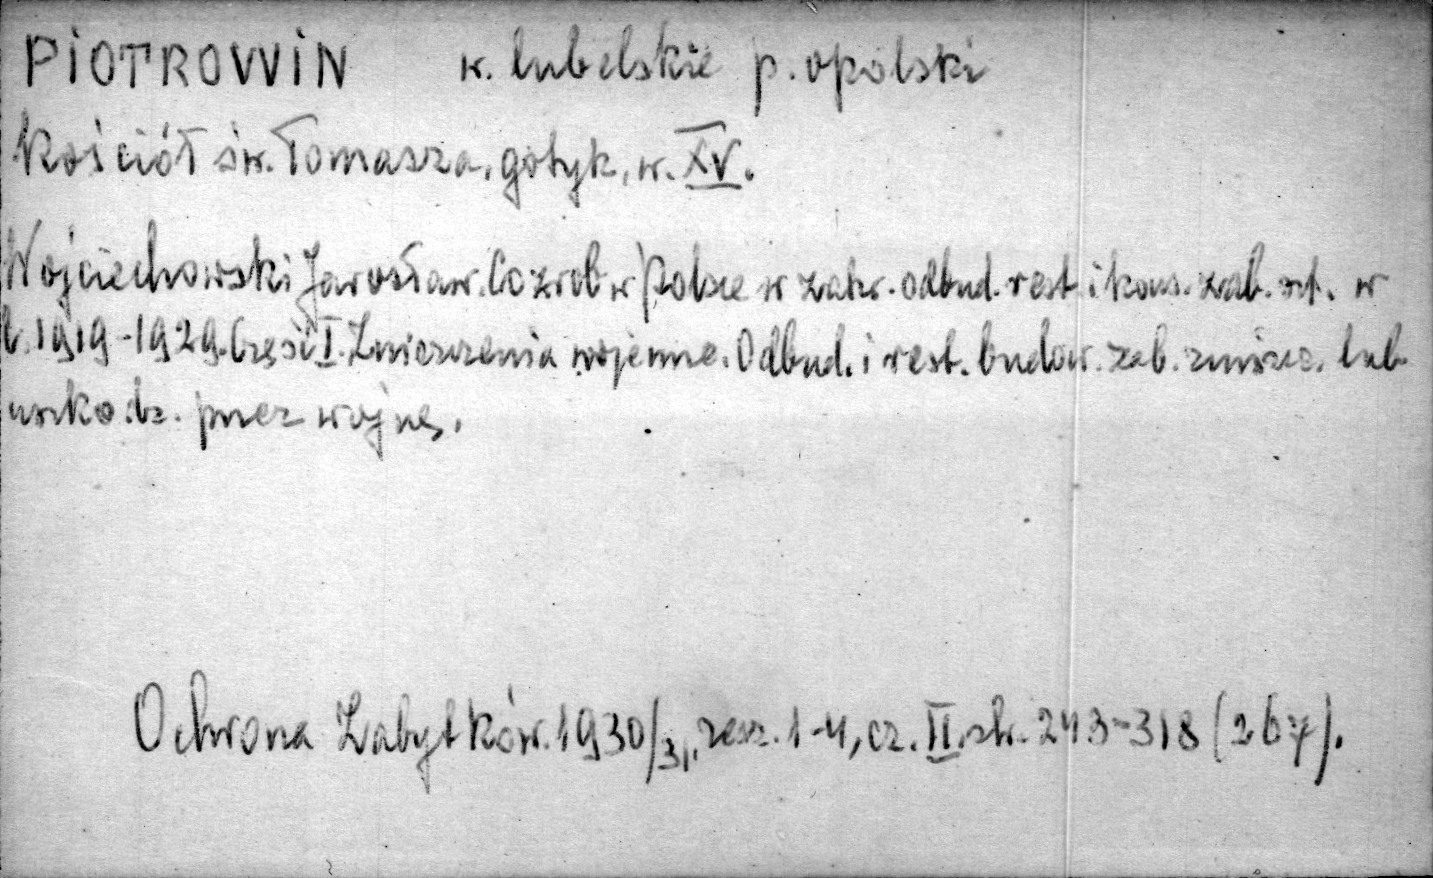 PIOTROWIN w. lubelskie p. opolski
Kościół św. Tomasza, gotyk, w. XV.
Wojciechowski Jarosław. Co zrob w Polsce w zakr. odbud. rest. i kons. zab. szt. w
l. 1919-1929. Część I. Zniszczenia wojenne. Odbud. i rest. budow. zab. zniszcz. lub
uszkodz. przez wojnę.
Ochrona Zabytków. 1930/31, zesz. 1-4, cz. II. str. 243-318 (267).